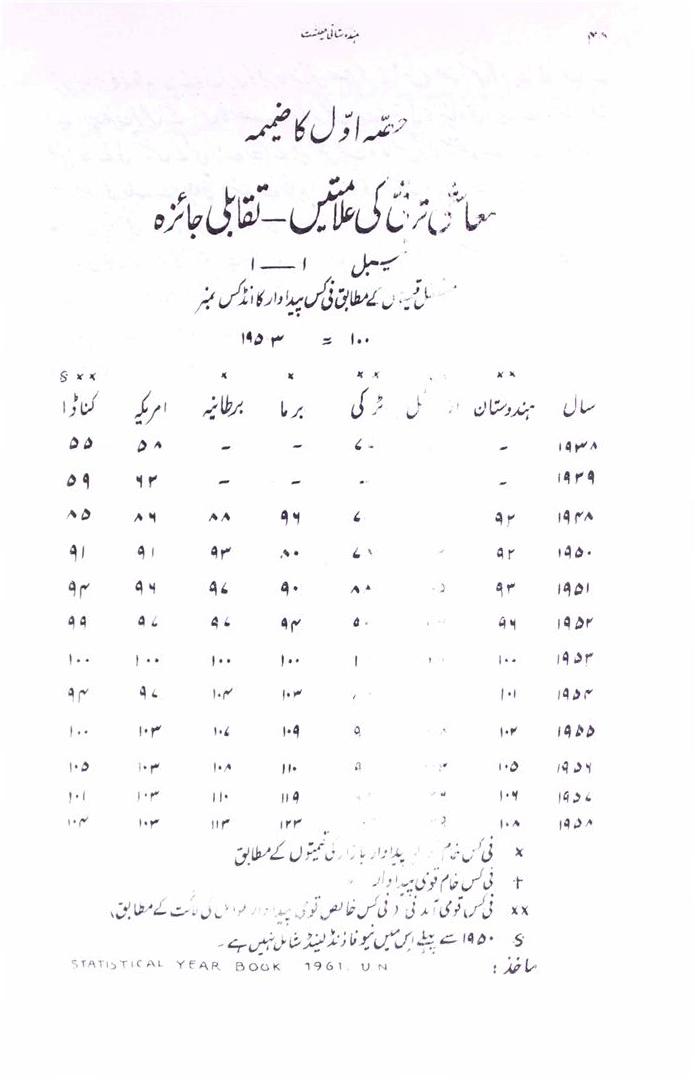 ۴۸ ہندوستانی معیشت
حصّہ اوّل کا ضمیمہ
معاشی ترقی کی علامتیں — تقابلی جائزہ
ٹیبل ۱ — ۱
مستقل قیمتوں کے مطابق فی کس پیداوار کا انڈکس نمبر
۱۰۰ = ۱۹۵۳
×× ×× × × ××§
سال ہندوستان ٹرکی برما برطانیہ امریکہ کناڈا
۱۹۳۸ - - - ۵۸ ۵۵
۱۹۳۹ - - - ۶۲ ۵۹
۱۹۴۸ ۹۲ ۹۶ ۸۸ ۸۶ ۸۵
۱۹۵۰ ۹۲ ۸۰ ۹۳ ۹۱ ۹۱
۱۹۵۱ ۹۳ ۹۰ ۹۷ ۹۶ ۹۴
۱۹۵۲ ۹۶ ۹۴ ۹۷ ۹۷ ۹۹
۱۹۵۳ ۱۰۰ ۱۰۰ ۱۰۰ ۱۰۰ ۱۰۰
۱۹۵۴ ۱۰۱ ۱۰۳ ۱۰۴ ۹۷ ۹۴
۱۹۵۵ ۱۰۲ ۱۰۹ ۱۰۷ ۱۰۳ ۱۰۰
۱۹۵۶ ۱۰۵ ۱۱۰ ۱۰۸ ۱۰۳ ۱۰۵
۱۹۵۷ ۱۰۶ ۱۱۹ ۱۱۰ ۱۰۳ ۱۰۱
۱۹۵۸ ۱۰۸ ۱۲۳ ۱۱۳ ۱۰۳ ۱۰۴
× فی کس خام پیداوار بازار کی قیمتوں کے مطابق
† فی کس خام قومی پیداوار
×× فی کس قومی آمدنی (فی کس خالص قومی پیداوار عوامل کی لاگت کے مطابق)
§ ۱۹۵۰ سے پہلے اس میں نیو فاؤنڈ لینڈ شامل نہیں ہے۔
ماخذ: STATISTICAL YEAR BOOK 1961. U N